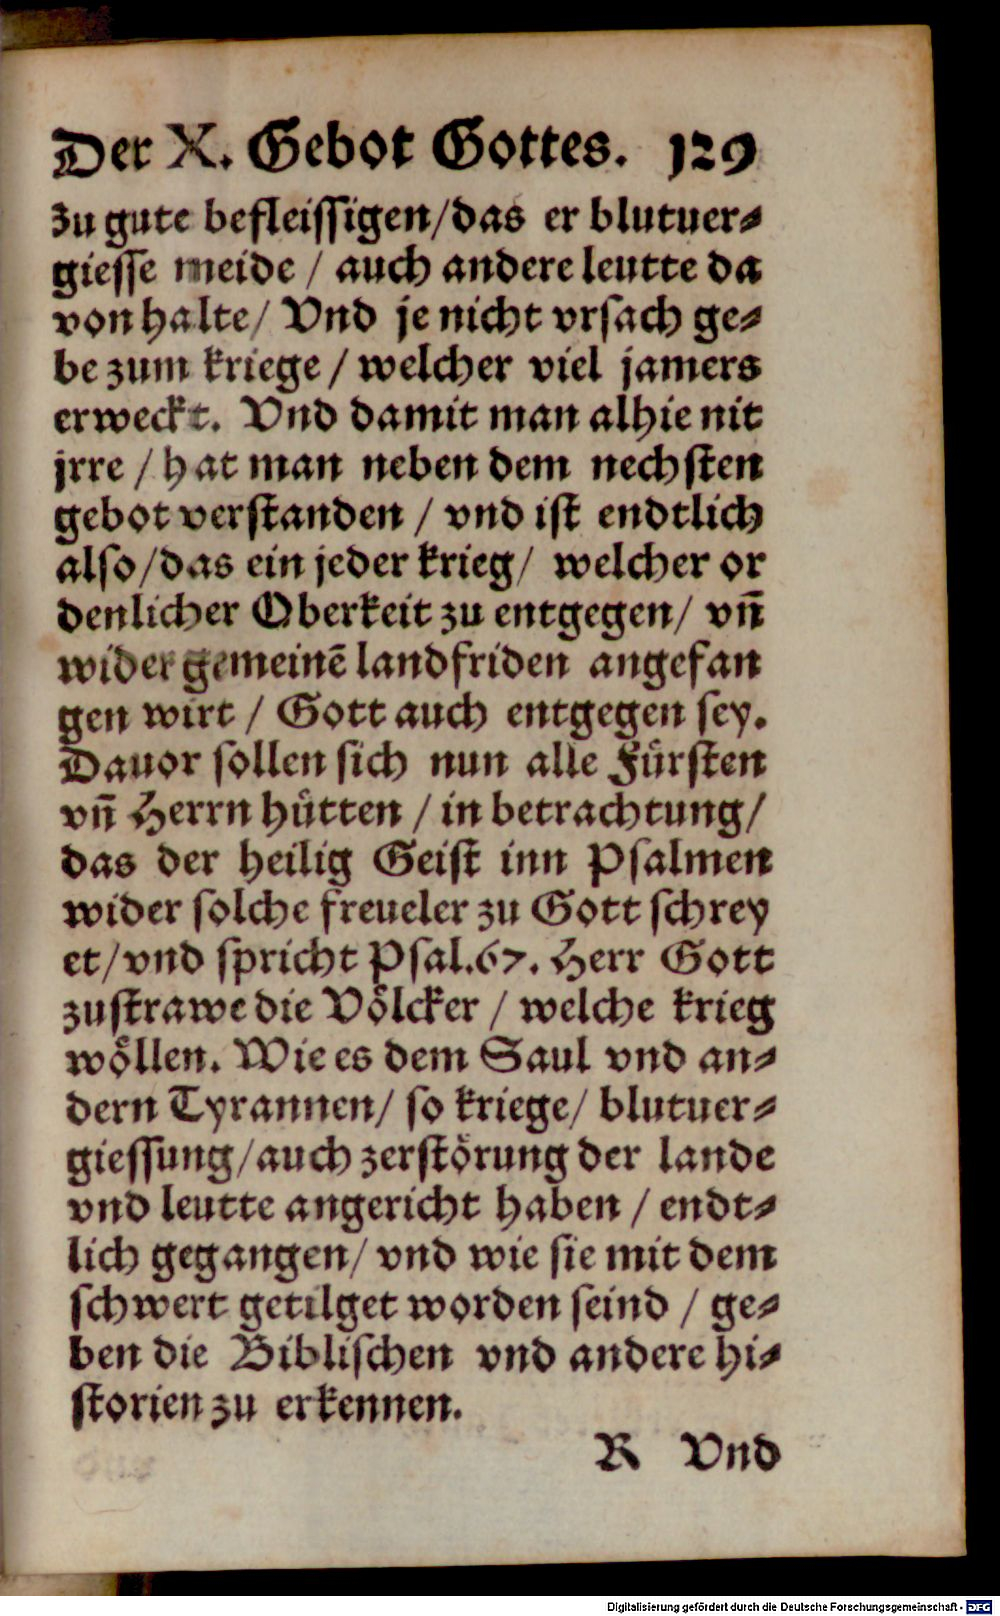 Der X. Gebot Gottes. 129
zu gute befleissigen/das er blutuer-
giesse meide / auch andere leutte da
von halte/ Vnd je nicht vrsach ge-
be zum kriege / welcher viel jamers
erweckt. Vnd damit man alhie nit
jrre / hat man neben dem nechsten
gebot verstanden / vnd ist endtlich
also/das ein jeder krieg/ welcher or
denlicher Oberkeit zu entgegen/ vn̄
wider gemeinē landfriden angefan
gen wirt / Gott auch entgegen sey.
Dauor sollen sich nun alle Fürsten
vn̄ Herrn hütten / in betrachtung/
das der heilig Geist inn Psalmen
wider solche freueler zu Gott schrey
et/vnd spricht Psal.67. Herr Gott
zustrawe die Völcker / welche krieg
wöllen. Wie es dem Saul vnd an-
dern Tyrannen/ so kriege/ blutuer-
giessung/auch zerstörung der lande
vnd leutte angericht haben / endt-
lich gegangen/ vnd wie sie mit dem
schwert getilget worden seind / ge-
ben die Biblischen vnd andere hi-
storien zu erkennen.
R Vnd
Digitalisierung gefördert durch die Deutsche Forschungsgemeinschaft - DFG